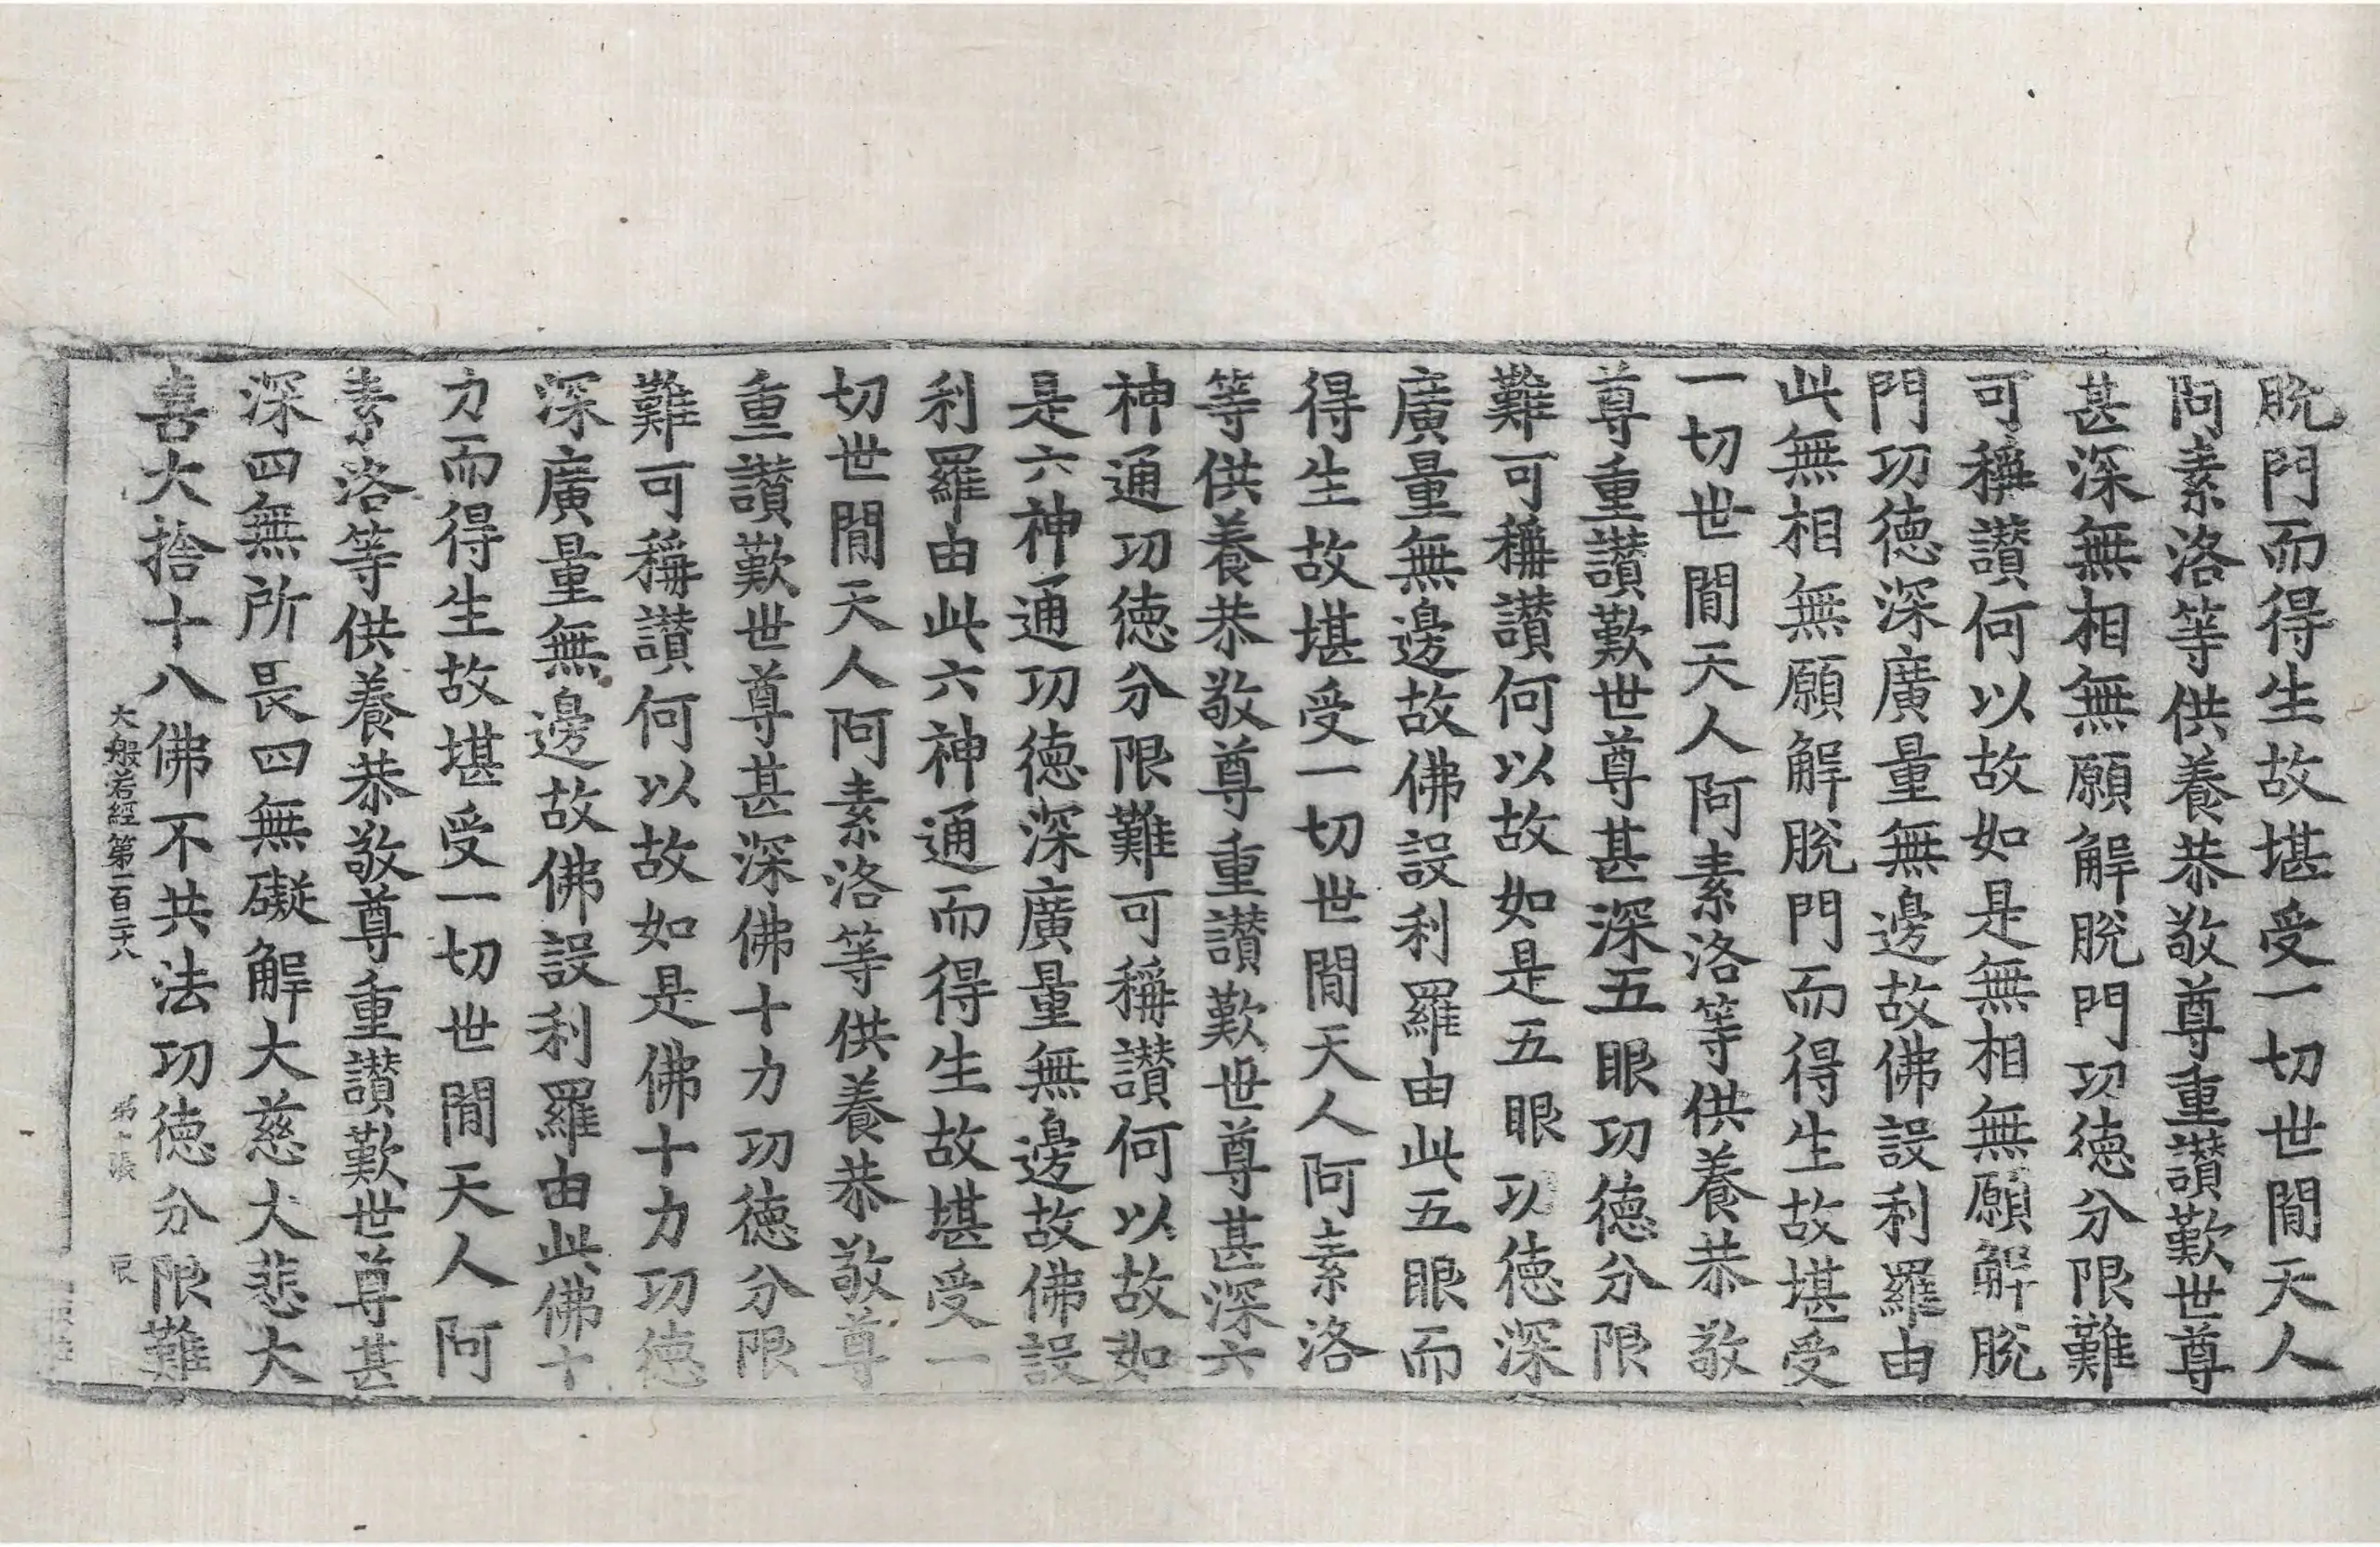 脫門而得生故堪受一切世閒天人
阿素洛等供養恭敬尊重讃歎世尊
甚深無相無願解脫門功德分限難
可稱讃何以故如是無相無願解脫
門功德深廣量無邊故佛設利羅由
此無相無願解脫門而得生故堪受
一切世閒天人阿素洛等供養恭敬
尊重讃歎世尊甚深五眼功德分限
難可稱讃何以故如是五眼功德深
廣量無邊故佛設利羅由此五眼而
得生故堪受一切世閒天人阿素洛
等供養恭敬尊重讃歎世尊甚深六
神通功德分限難可稱讃何以故如
是六神通功德深廣量無邊故佛設
利羅由此六神通而得生故堪受一
切世閒天人阿素洛等供養恭敬尊
重讃歎世尊甚深佛十力功德分限
難可稱讃何以故如是佛十力功德
深廣量無邊故佛設利羅由此佛十
力而得生故堪受一切世閒天人阿
素洛等供養恭敬尊重讃歎世尊甚
深四無所畏四無礙解大慈大悲大
喜大捨十八佛不共法功德分限難
大般若經第一百二十八 第 張